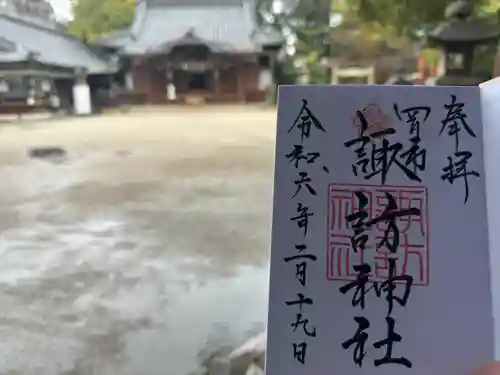 奉拝
四日市
諏訪神社
令和六年二月十九日